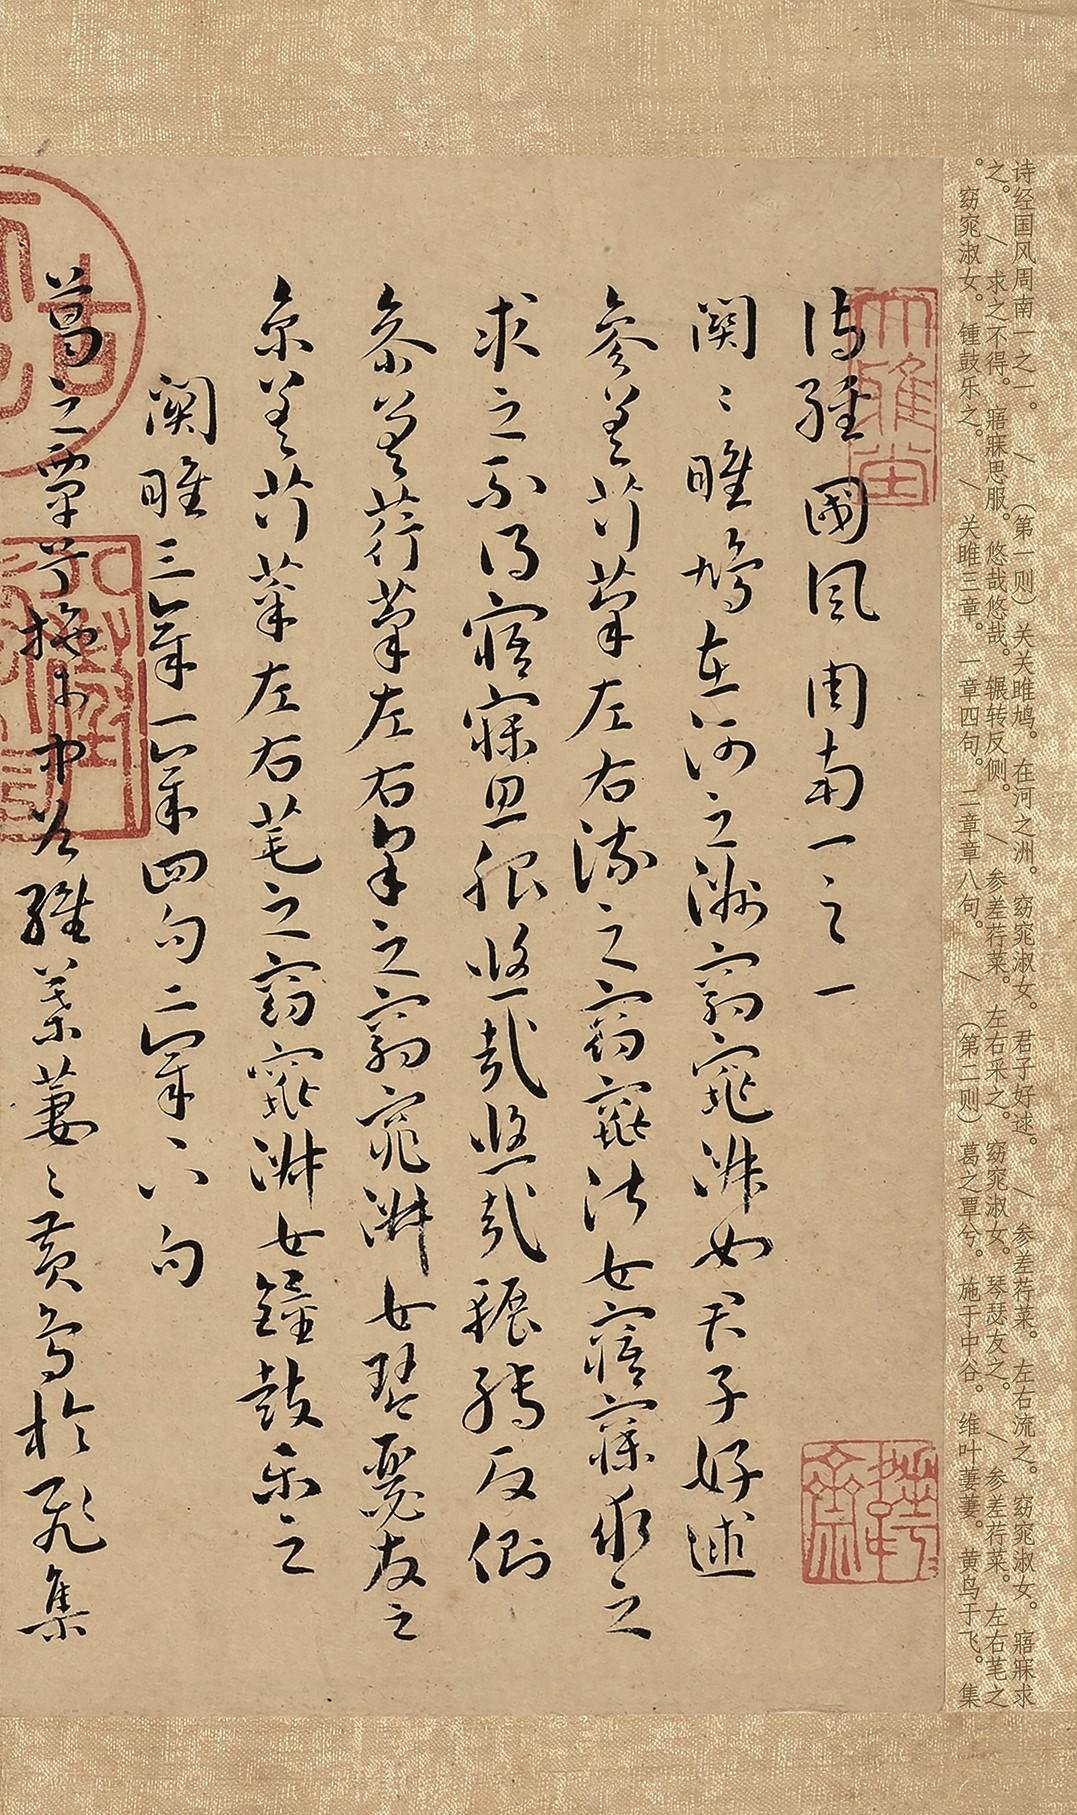 诗经国风周南一之一。/(第一则)关关雎鸠。在河之洲。窈窕淑女。君子好逑。/参差荇菜。左右流之。窈窕淑女。寤寐求
之。/求之不得。寤寐思服。悠哉悠哉。辗转反侧。/参差荇菜。左右采之。窈窕淑女。琴瑟友之。/参差荇菜。左右芼之
。窈窕淑女。锺鼓乐之。/关雎三章。一章四句。二章章八句。/(第二则)葛之覃兮。施于中谷。维叶萋萋。黄鸟于飞。集
大雅堂
詩經國風周南一之一
關〻雎鳩在河之洲窈窕淑女君子好逑
參差荇菜左右流之窈窕淑女寤寐求之
求之不得寤寐思服悠哉悠哉輾轉反側
參差荇菜左右采之窈窕淑女琴瑟友之
參差荇菜左右芼之窈窕淑女鐘鼓樂之
關雎三章一章四句二章八句
葛之覃兮施于中谷維葉萋〻黃鳥於飛集